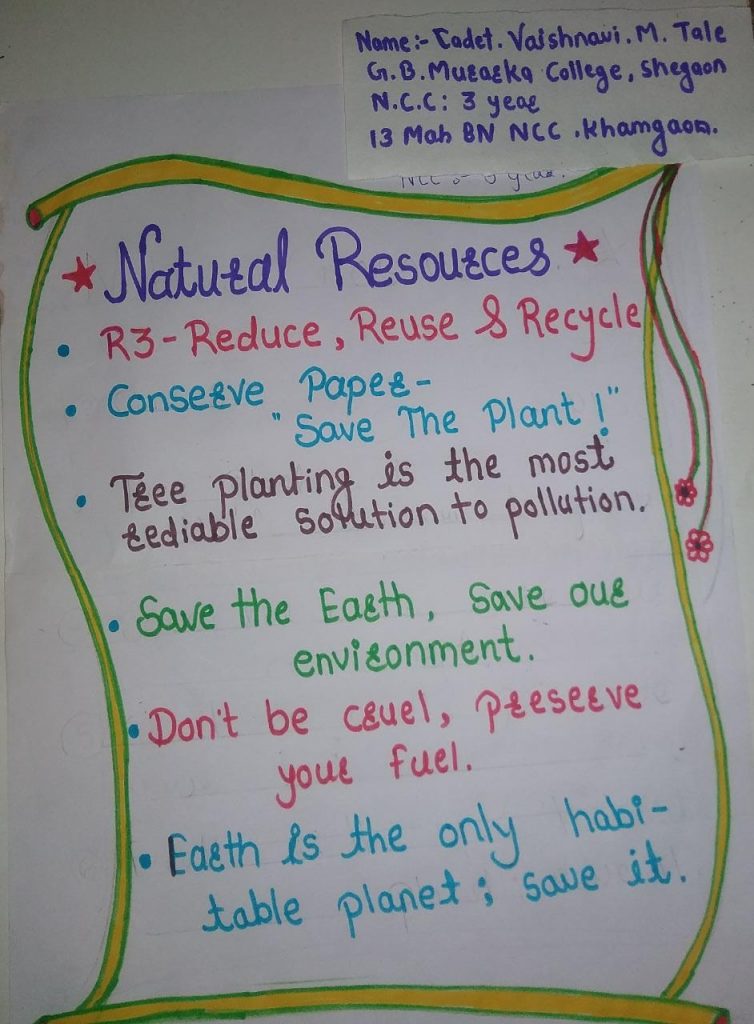 Name:- Cadet. Vaishnavi. M. Tale
G. B. Murarka College, Shegaon
N.C.C: 3 year
13 Mah BN NCC .Khamgaon.
NCC :- 3 year.
Natural Resources
• R3-Reduce, Reuse & Recycle
• Conserve Paper-
"Save The Plant!"
• Tree planting is the most
rediable solution to pollution.
• Save the Earth, Save our
environment.
• Don't be cruel, preserve
your fuel.
• Earth is the only habi-
table planet; save it.